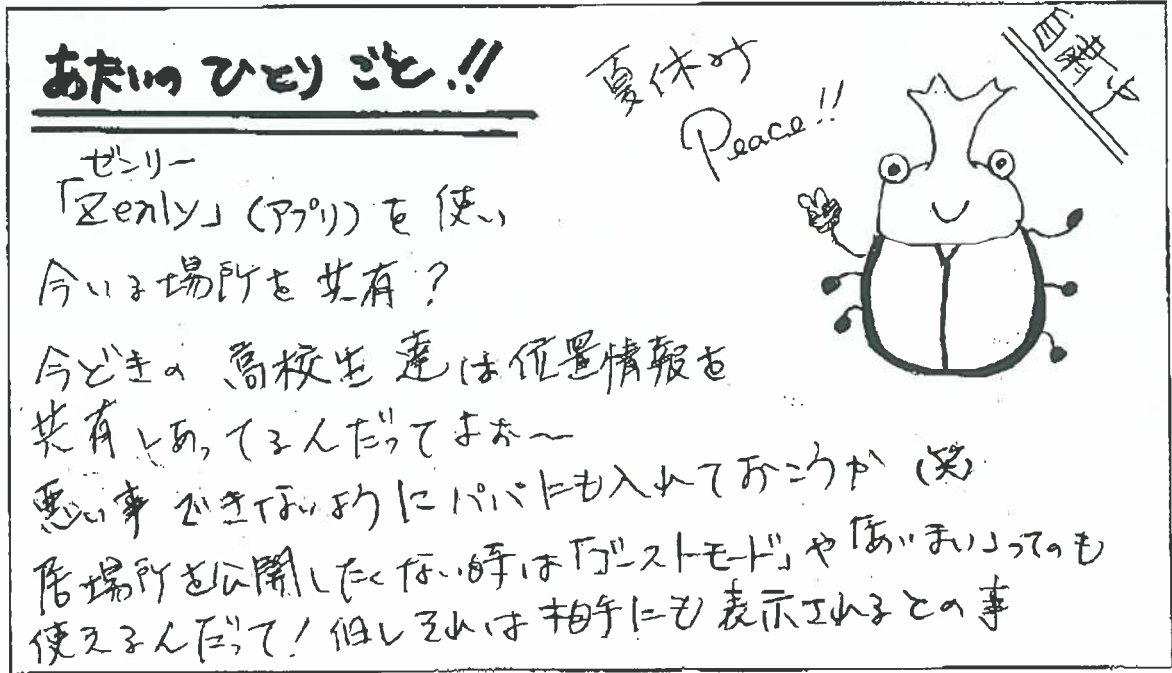 あたいの ひとり ごと!!
夏休み
Peace!!
自粛中
ゼンリー
「Zenly」(アプリ)を使い
今いる場所を共有?
今どきの 高校生 達は位置情報を
共有しあってるんだってよお~
悪い事 できないようにパパにも入れておこうか (笑)
居場所を公開したくない時は「ゴーストモード」や「あいまい」ってのも
使えるんだって! 但しそれは相手にも表示されるとの事